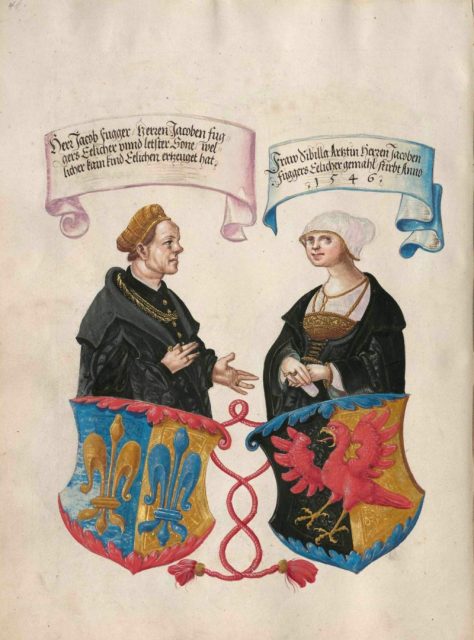 Herr Jacob Fugger Herren Jacoben Fug
gers Eelicher unnd letster Sone, wel
licher kain kind Eelichen erzeuget hat.
Fraw Sibilla Artztin Herren Jacoben
Fuggers Eelicher gemahl stirbt Anno
1546